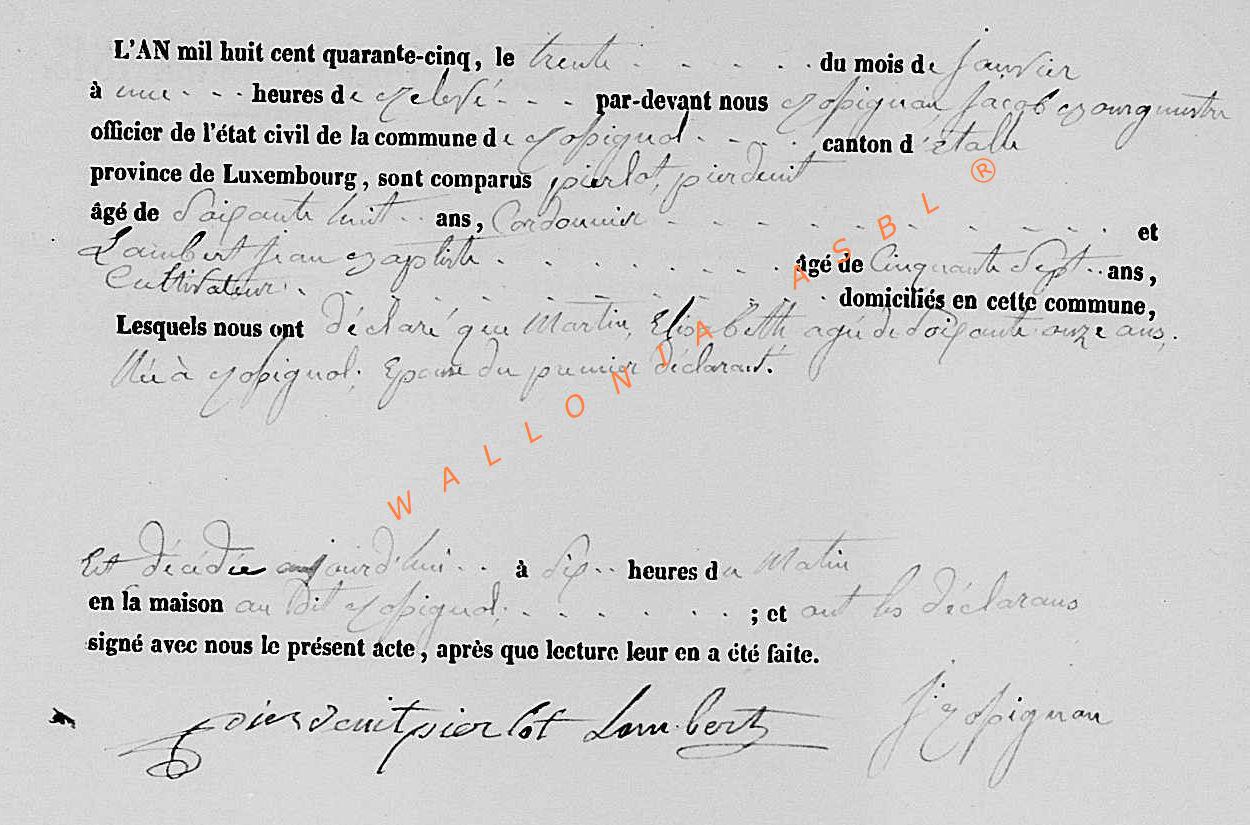 L'AN mil huit cent quarante-cinq, le trente . - - - . du mois de janvier
à une - - - heures de relevé - - - par-devant nous Jacob Bourgmestre
officier de l'état civil de la commune de - - - . canton d'étalle
province de Luxembourg, sont comparus pierlot, pierdenit
âgé de Soixante huit .. ans, Cordonnier - - - - - - - - - - . et
Lambert jean Baptiste . - . - . - - - . âgé de Cinquante Sept .. ans,
Cultivateur . . - - - - - - - - - - - . domiciliés en cette commune,
Lesquels nous ont déclaré que Martin, Elisabeth, agée de Soixante onze ans,
Née à ; Epouse du premier déclarant.
Est décédée aujourd'hui - . à Six .. heures du Matin
en la maison au dit ; . - . - - . - . ; et ont les déclarans
signé avec nous le présent acte, après que lecture leur en a été faite.
pierdenit pierlot Lambert J
WALLONIA ASBL ®